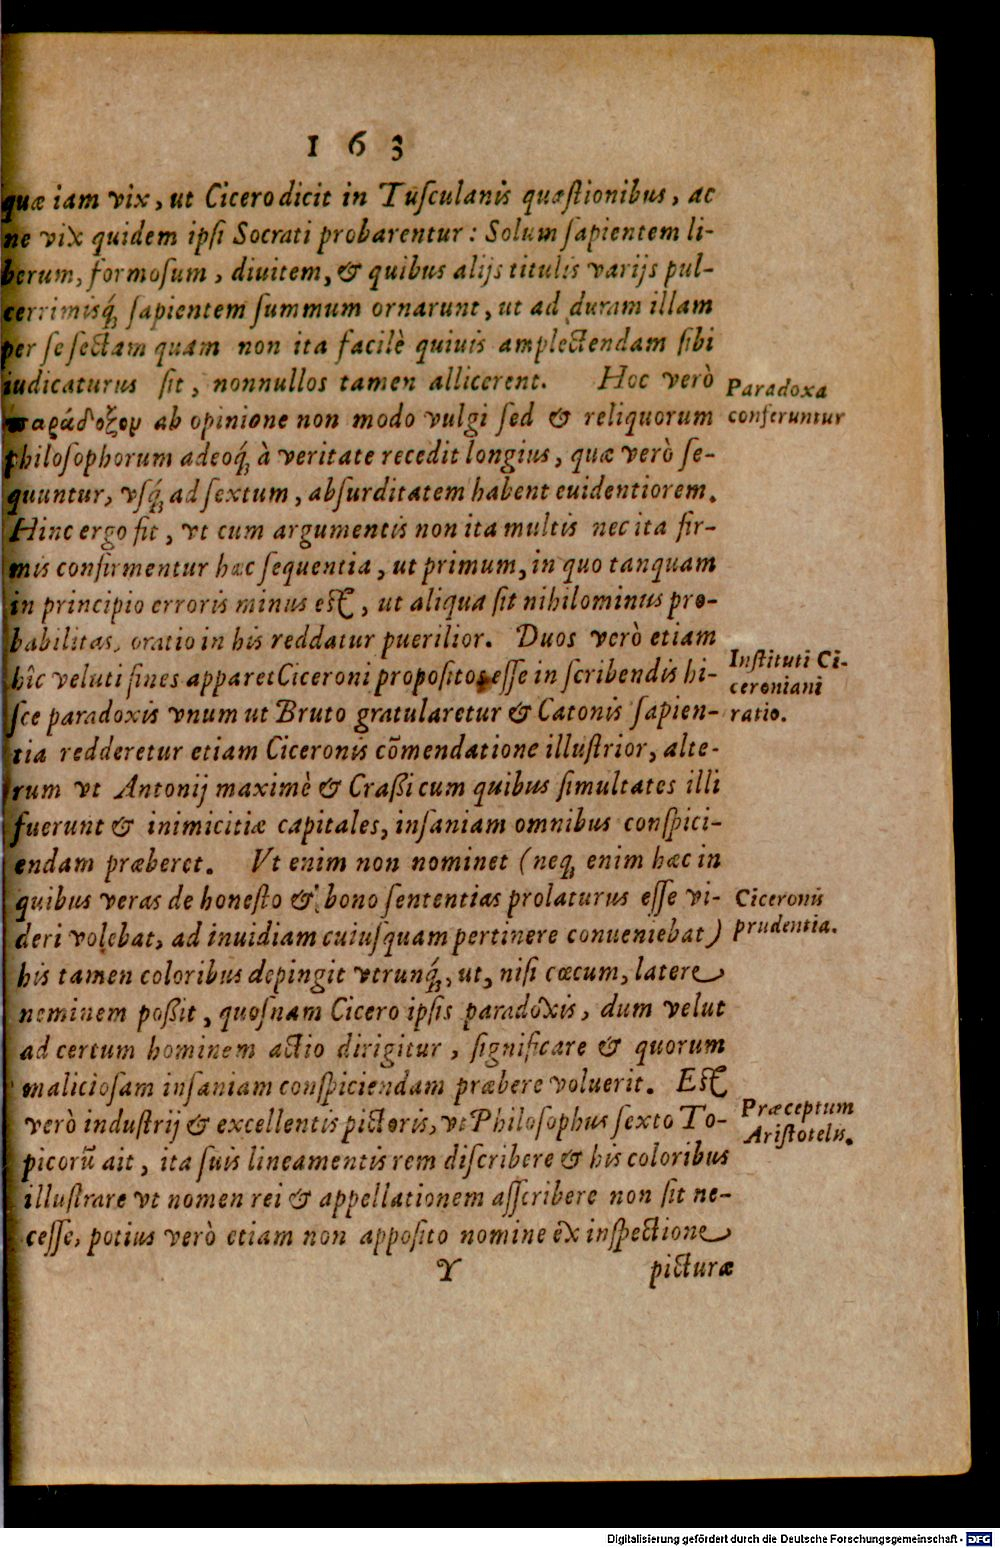 163
quæ iam vix, ut Cicero dicit in Tuſculanis quæſtionibus, ac
ne vix quidem ipſi Socrati probarentur: Solum ſapientem li-
berum, formoſum, diuitem, & quibus alijs titulis varijs pul-
cerrimisq́; ſapientem ſummum ornarunt, ut ad duram illam
per ſe ſectam quam non ita facilè quiuis amplectendam ſibi
iudicaturus ſit, nonnullos tamen allicerent. Hoc verò
Paradoxa
conferuntur
παράδοξον ab opinione non modo vulgi ſed & reliquorum
philoſophorum adeoq́; à veritate recedit longius, quæ verò ſe-
quuntur, vſq́; ad ſextum, abſurditatem habent euidentiorem.
Hinc ergo fit, vt cum argumentis non ita multis nec ita fir-
mis confirmentur hæc ſequentia, ut primum, in quo tanquam
in principio erroris minus eſt, ut aliqua ſit nihilominus pro-
babilitas, oratio in his reddatur puerilior. Duos verò etiam
hîc veluti fines apparet Ciceroni propoſitos eſſe in ſcribendis hi-
Inſtituti Ci-
ceroniani
ratio.
ſce paradoxis vnum ut Bruto gratularetur & Catonis ſapien-
tia redderetur etiam Ciceronis cõmendatione illuſtrior, alte-
rum vt Antonij maximè & Craßi cum quibus ſimultates illi
fuerunt & inimicitiæ capitales, inſaniam omnibus conſpici-
endam præberet. Vt enim non nominet (neq; enim hæc in
quibus veras de honeſto & bono ſententias prolaturus eſſe vi-
Ciceronis
prudentia.
deri volebat, ad inuidiam cuiuſquam pertinere conueniebat)
his tamen coloribus depingit vtrunq́;, ut, niſi cæcum, latere
neminem poßit, quoſnam Cicero ipſis paradoxis, dum velut
ad certum hominem actio dirigitur, ſignificare & quorum
malicioſam inſaniam conſpiciendam præbere voluerit. Eſt
verò induſtrij & excellentis pictoris, vt Philoſophus ſexto To-
Præceptum
Ariſtotelis.
picorũ ait, ita ſuis lineamentis rem diſcribere & his coloribus
illuſtrare vt nomen rei & appellationem aſſcribere non ſit ne-
ceſſe, potius verò etiam non appoſito nomine ex inſpectione
Y
picturæ
Digitalisierung gefördert durch die Deutsche Forschungsgemeinschaft - DFG